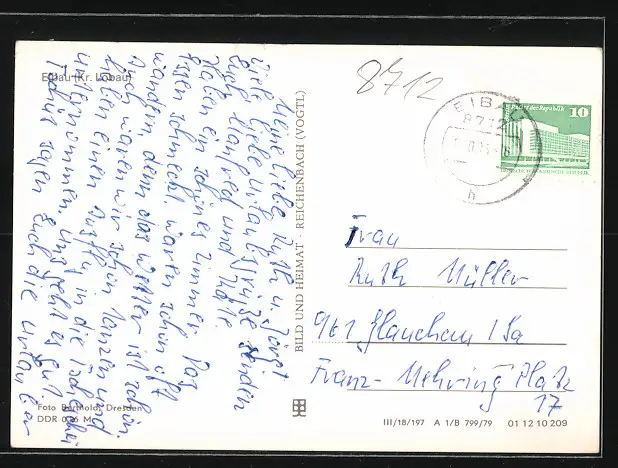 Eibau (Kr. Löbau)
Meine liebe Ruth u. Jörg!
Viele liebe Urlaubsgrüße senden
Euch Manfred und
Haben ein schönes Zimmer. Das
Essen schmeckt. Waren schon oft
wandern, denn das Wetter ist schön.
Auch waren wir schon tanzen und
haben einen Ausflug in die Tschechei
unternommen. Uns geht es gut.
Tschüß sagen Euch die Urlauber
Foto Berthold, Dresden
DDR 0,6 M
BILD UND HEIMAT · REICHENBACH (VOGTL)
8712
EIBAU
8712
h
Palast der Republik
10
DEUTSCHE DEMOKRATISCHE REPUBLIK
Frau
Ruth Müller
961 Glauchau / Sa
Franz-Mehring Platz
17
III/18/197 A 1/B 799/79 01 12 10 209